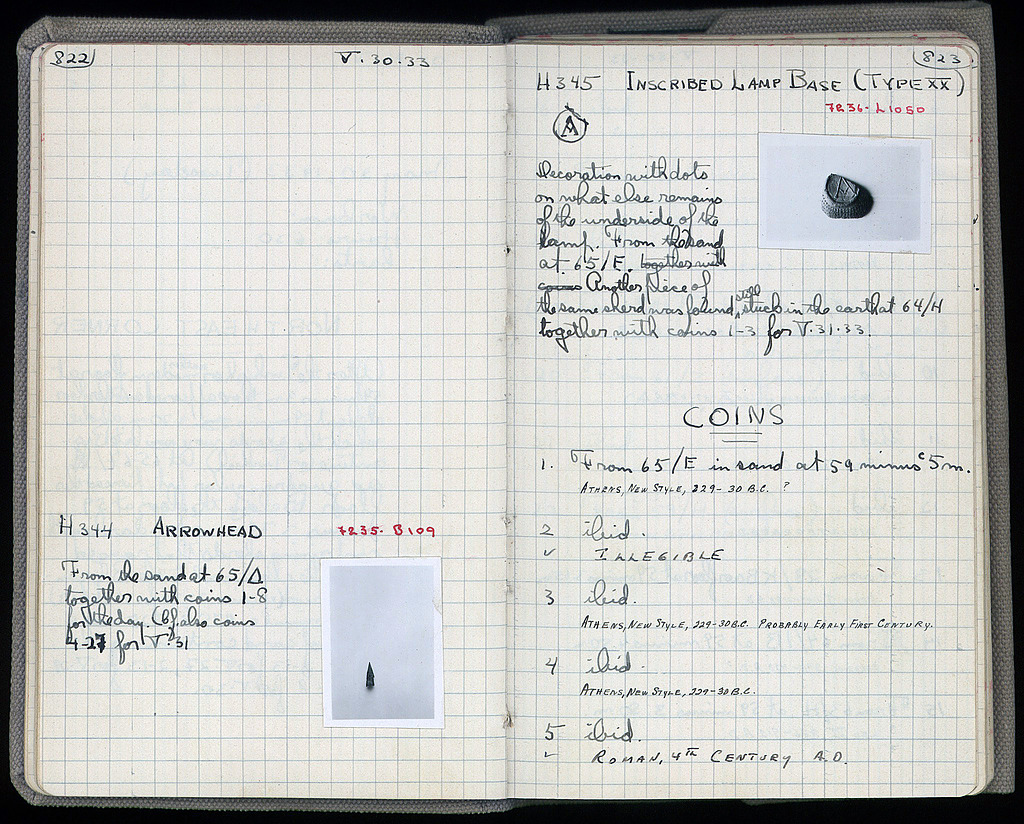 822
V.30.33
H344 ARROWHEAD
7235-B109
From the sand at 65/Δ
together with coins 1-8
for the day. Cf. also coins
4-27 for V.31
823
H345 INSCRIBED LAMP BASE (TYPE XX)
7236-L1050
A
Decoration with dots
on what else remains
of the underside of the
lamp. From the sand
at 65/E. together with
coins Another piece of
the same sherd was found still stuck in the earth at 64/H
together with coins 1-3 for V.31.33.
COINS
1. From 65/E in sand at 59 minus 5m.
ATHENS, NEW STYLE, 229-30 B.C. ?
2 ibid.
✓ ILLEGIBLE
3 ibid.
ATHENS, NEW STYLE, 229-30 B.C. PROBABLY EARLY FIRST CENTURY.
4 ibid.
ATHENS, NEW STYLE, 229-30 B.C.
5 ibid.
✓ ROMAN, 4TH CENTURY A.D.